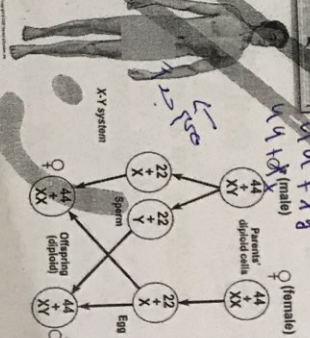 44 + XY
(male)
♀ (female)
Parents'
diploid cells
44
+
XY
44
+
XX
22
+
X
22
+
Y
22
+
X
Sperm
Egg
44
+
XX
44
+
XY
♀
Offspring
(diploid)
X-Y system